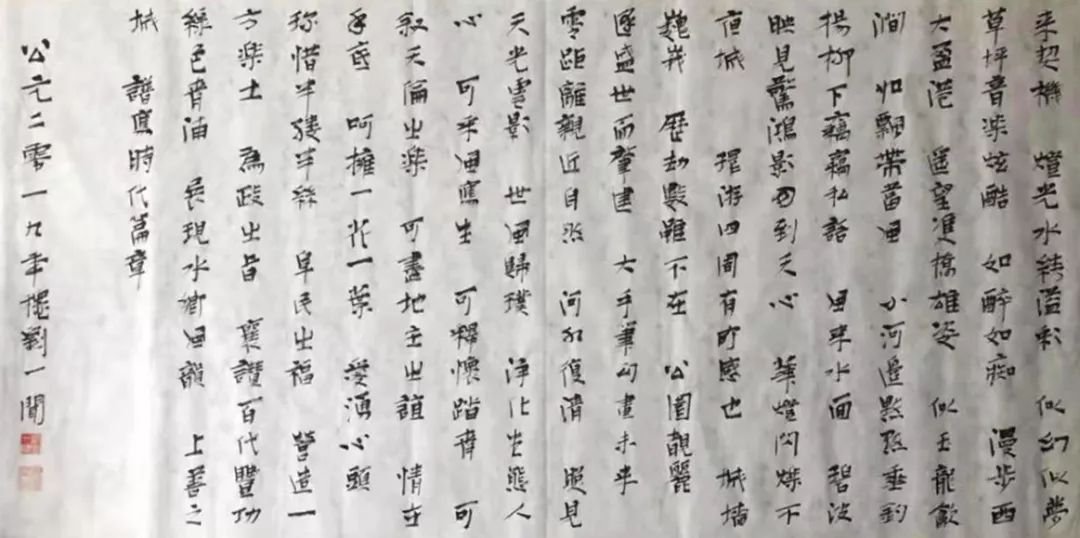 来契機 燈光水結溢彩 似幻似夢
草坪音樂炫酷 如醉如痴 漫步西
大盈港 遥望淀橋雄姿 似玉龍飲
澗 如飄帶當風 小河邊點點垂釣
楊柳下竊竊私語 風来水面 碧波
映見驚鴻影 到天心 華燈閃爍不
夜城 環游四周有所感也 城墙
巍峩 歷劫數雖不在 公園靚麗
逢盛世而肇建 大手筆勾畫未来
零距離親近自然 河水復清 照見
天光雲影 世風歸璞 净化生態人
心 可乘風寫生 可釋懷踏青 可
叙天倫之樂 可盡地主之誼 情在
手底 呵擁一花一葉 愛湧心頭
珍惜半縷半絲 阜民之福 營造一
方樂土 為政之旨 襄讚百代豐功
綠色青浦 展現水鄉風韻 上善之
城 譜寫時代篇章
公元二零一九年 劉一聞